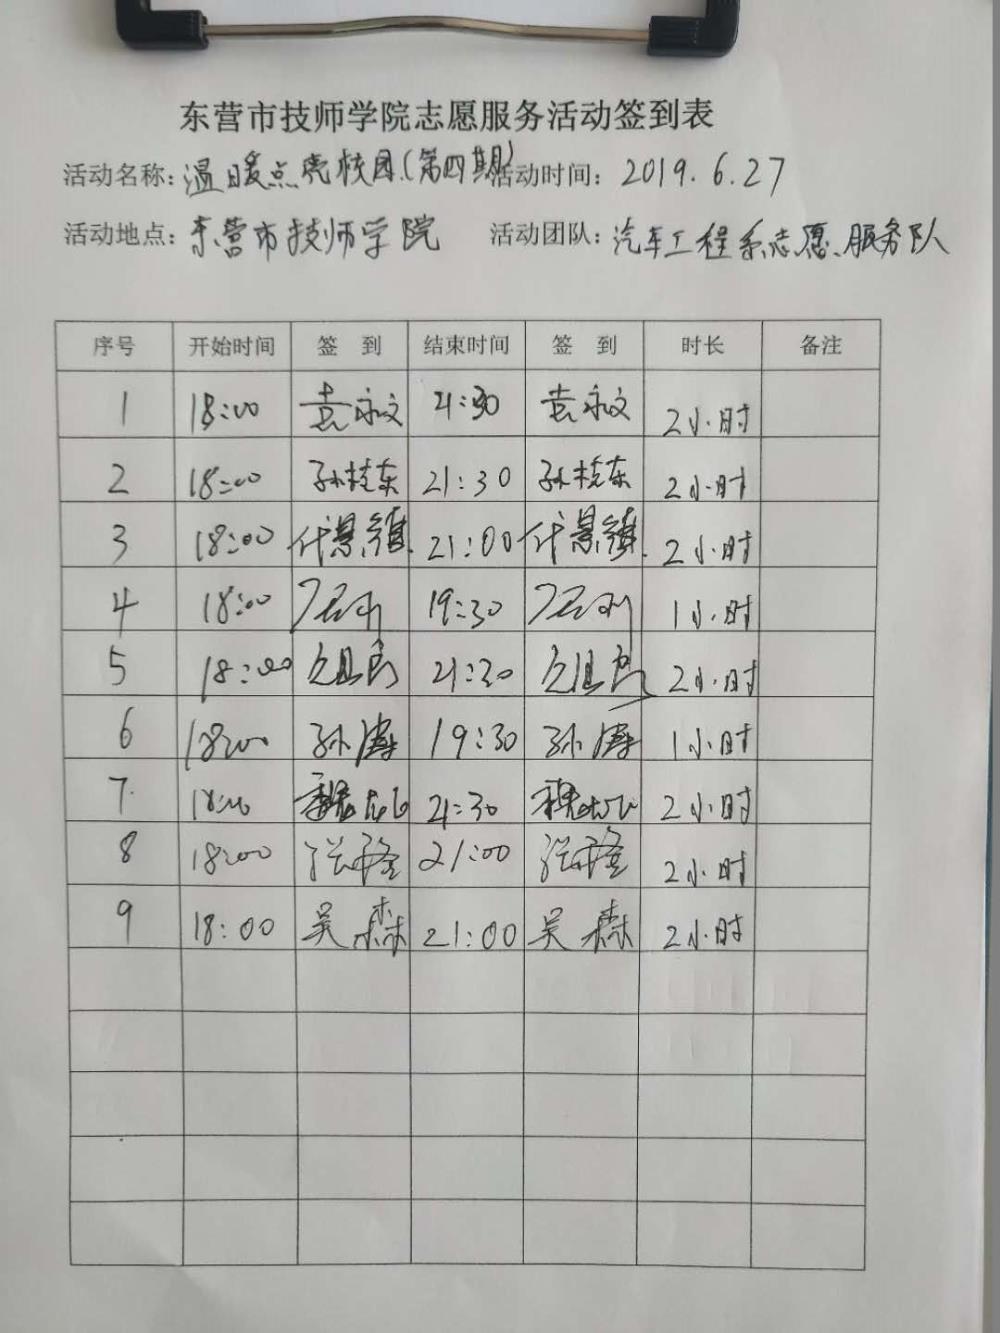 东营市技师学院志愿服务活动签到表
活动名称: 温暖点亮校园(第四期) 活动时间: 2019.6.27
活动地点: 东营市技师学院 活动团队: 汽车工程系志愿服务队
序号 开始时间 签 到 结束时间 签 到 时长 备注
1 18:00 袁永文 21:30 袁永文 2小时
2 18:00 孙桂东 21:30 孙桂东 2小时
3 18:00 代景镇 21:00 代景镇 2小时
4 18:00 19:30 1小时
5 18:00 21:30 2小时
6 18:00 孙涛 19:30 孙涛 1小时
7 18:00 21:30 2小时
8 18:00 张隆 21:00 张隆 2小时
9 18:00 吴森 21:00 吴森 2小时